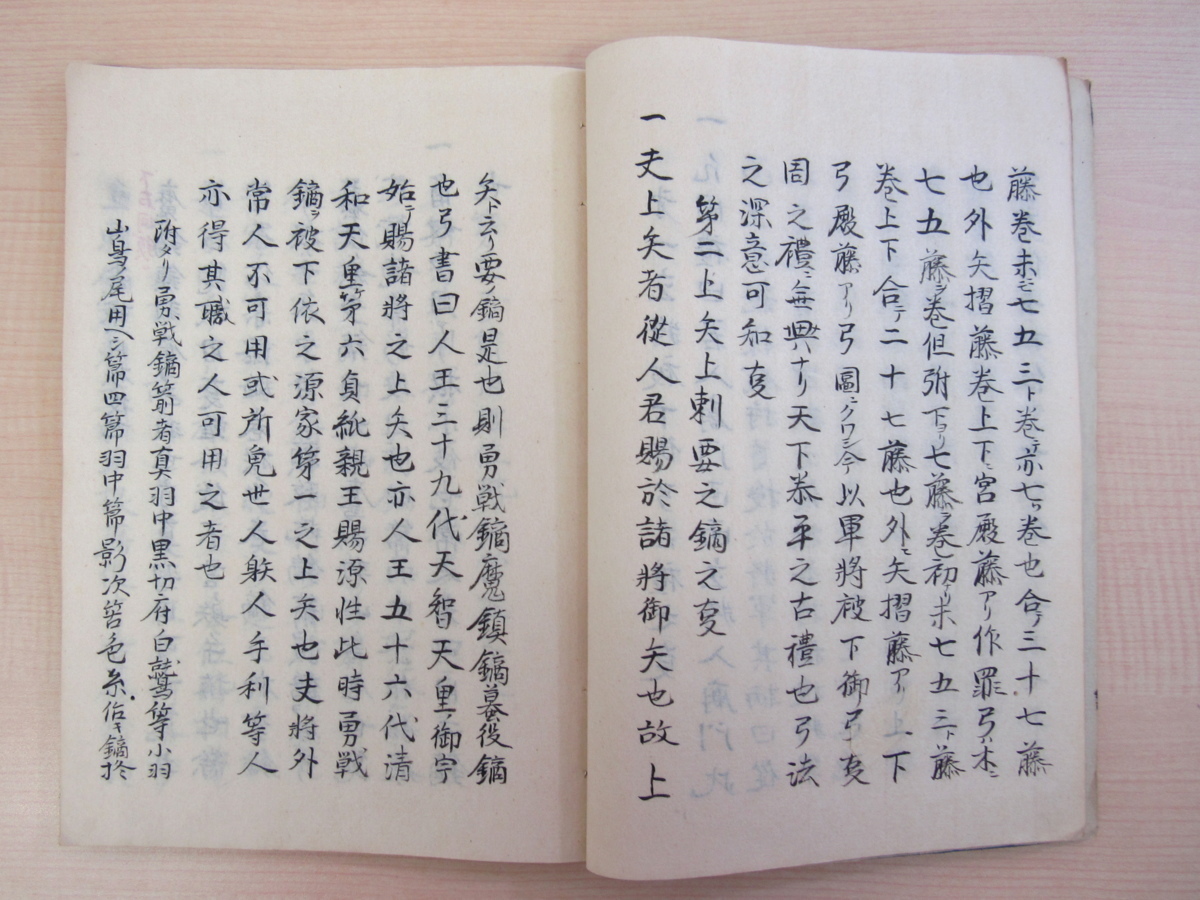 藤巻末ニ七五三ト巻亦七ツ巻也合テ三十七藤
也外矢摺藤巻上下ニ宮殿藤アリ作罪弓ハ木ニ
七五藤ヲ巻但弣下ヨリ七藤ヲ巻初リ末七五三ト藤
巻上下合テ二十七藤也外ニ矢摺藤アリ下
弓殿藤アリ弓圖ニクワシ今以軍將被下御弓亊
固之禮ニ無興ナリ天下恭平之古禮也弓法
之深意可知亊
第二上矢上刺要之鏑之亊
一夫上矢者從人君賜於諸將御矢也故上
矢ト云リ要ノ鏑是也則勇戦鏑魔鎮鏑蟇役鏑
也弓書曰人王三十九代天智天皇ノ御宇
始テ賜諸將之上矢也亦人王五十六代清
和天皇第六貞純親王賜源性此時勇戦
鏑ヲ被下依之源家第一之上矢也夫將外
常人不可用或所免世人躾人手利等人
亦得其職之人可用之者也
附タリ勇戦鏑箭者真羽中黒切府白鷲等小羽
山鳥ノ尾用ヘシ篦四篦羽中篦影次筈色糸